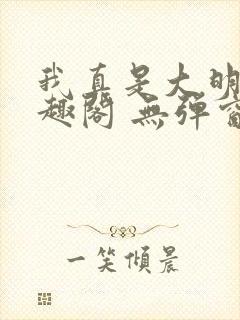 我真是大明
趣阁 無弹窗
一笑倾晨